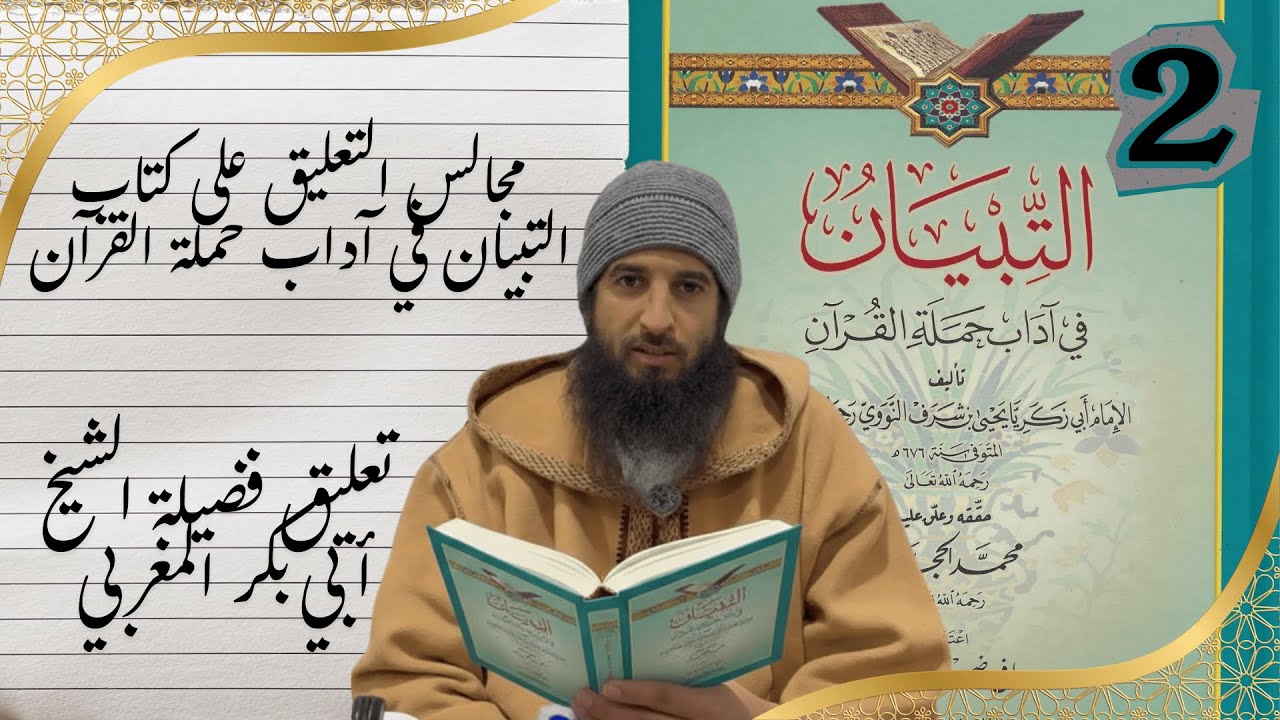 مجالس التعليق على كتاب
التبيان في آداب حملة القرآن
تعليق فضيلة الشيخ
أبي بكر المغربي
2
التِّبْيَانُ
في آدَابِ حَمَلَةِ القُرْآنِ
تأليف
الإِمَامِ أَبي زَكَرِيَّا يَحْيَى بن شَرَف النَّوَوِيّ
المتوفى سنة ٦٧٦ هـ
رَحِمَهُ اللهُ تَعَالَى
حققه وعلق عليه
محمد الحجـ
رَحِمَهُ اللهُ
التبيان
التبيان